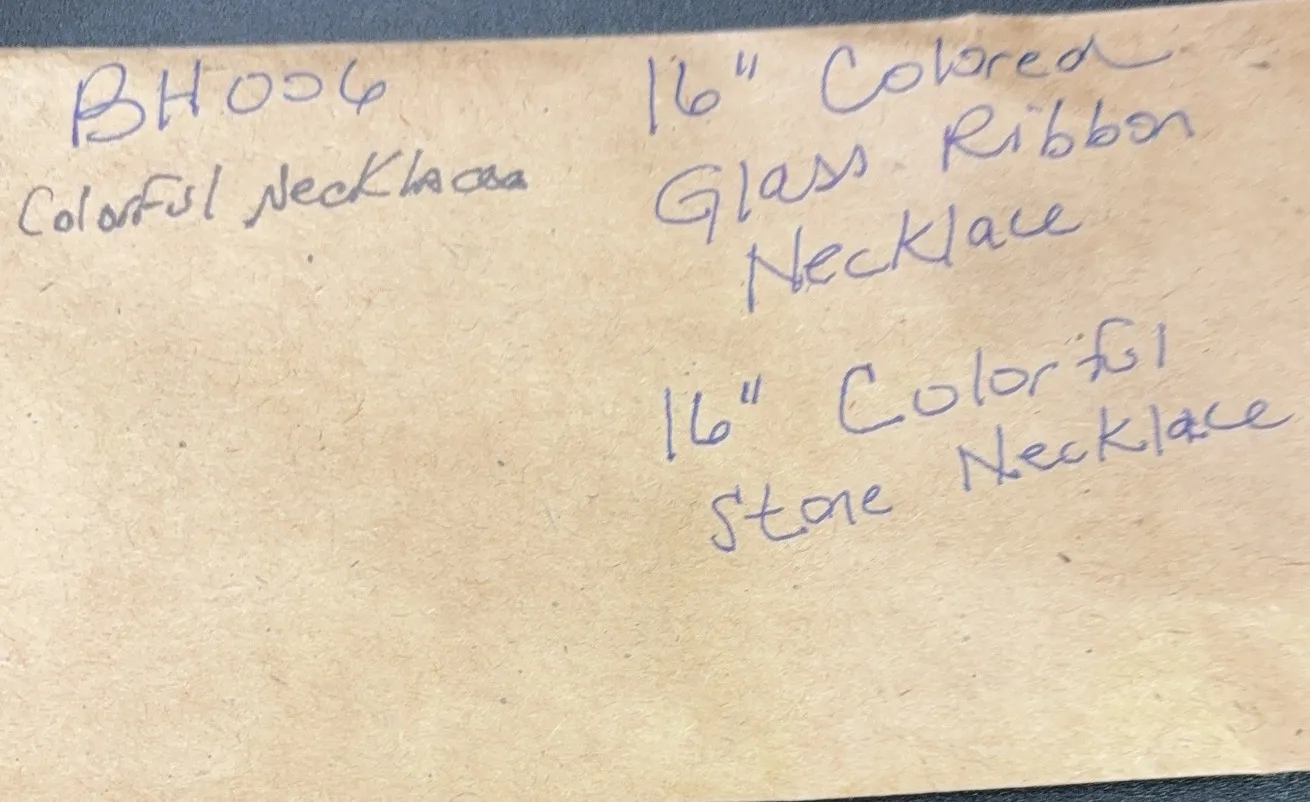 BH006
Colorful Necklaces
16" Colored
Glass Ribbon
Necklace
16" Colorful
Stone Necklace